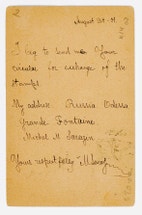 August 31st
I beg to send me Your
circular in exchange of the
stamps.
My address: Russia Odessa
Grande Fontaine
Michel M. Sarazin
Yours respectfully M Sarazin